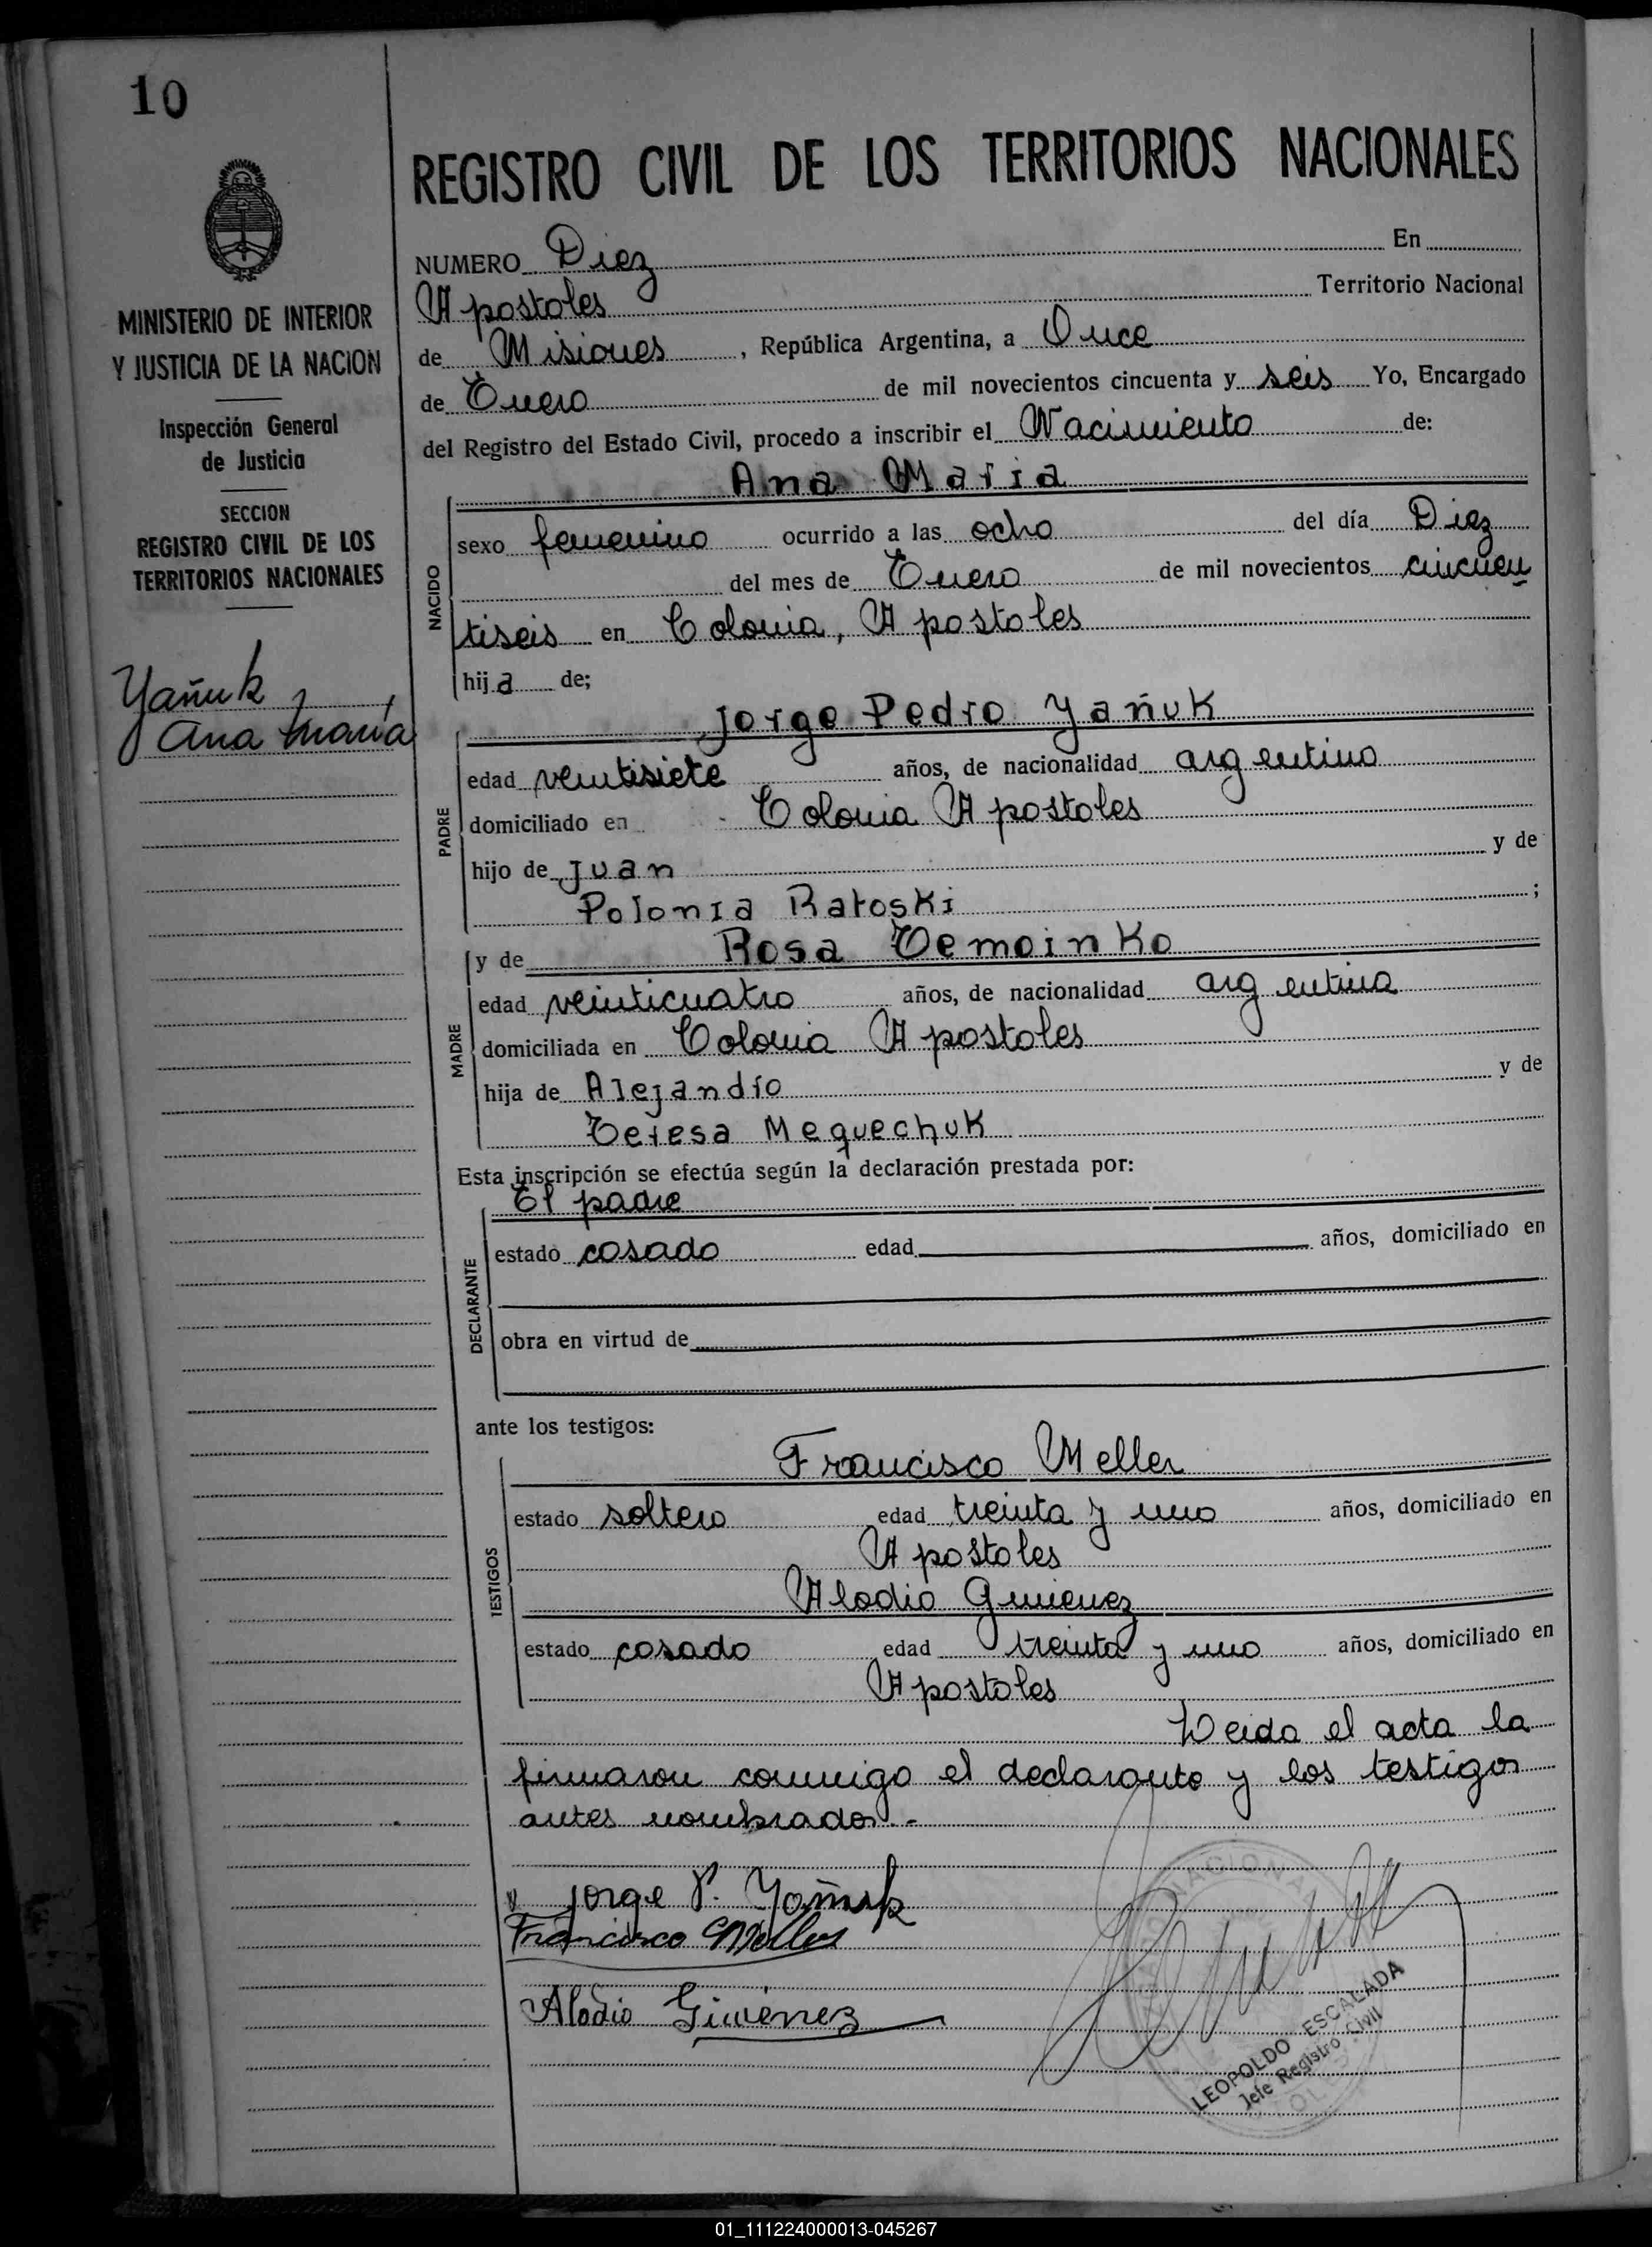 10
REGISTRO CIVIL DE LOS TERRITORIOS NACIONALES
MINISTERIO DE INTERIOR
Y JUSTICIA DE LA NACION
Inspección General
de Justicia
SECCION
REGISTRO CIVIL DE LOS
TERRITORIOS NACIONALES
Yañuk
Ana María
NUMERO Diez En
Apostoles Territorio Nacional
de Misiones, República Argentina, a Once
de Enero de mil novecientos cincuenta y seis Yo, Encargado
del Registro del Estado Civil, procedo a inscribir el Nacimiento de:
NACIDO
Ana Maria
sexo femenino ocurrido a las ocho del día Diez
del mes de Enero de mil novecientos cincuen
tiseis en Colonia, Apostoles
hija de;
PADRE
Jorge Pedro Yañuk
edad veintisiete años, de nacionalidad argentino
domiciliado en Colonia Apostoles
hijo de Juan y de
Polonia Ratoski ;
MADRE
y de Rosa Temoinko
edad veinticuatro años, de nacionalidad argentina
domiciliada en Colonia Apostoles
hija de Alejandro y de
Teresa Mequechuk
Esta inscripción se efectúa según la declaración prestada por:
DECLARANTE
El padre
estado casado edad años, domiciliado en
obra en virtud de
ante los testigos:
TESTIGOS
Francisco Meller
estado soltero edad treinta y uno años, domiciliado en
Apostoles
Alodio Gimenez
estado casado edad treinta y uno años, domiciliado en
Apostoles
Leida el acta la
firmaron conmigo el declarante y los testigos
antes nombrados.-
Jorge P. Yañuk
Francisco Meller
Alodio Giménez
LEOPOLDO ESCALADA
Jefe Registro Civil
01_111224000013-045267